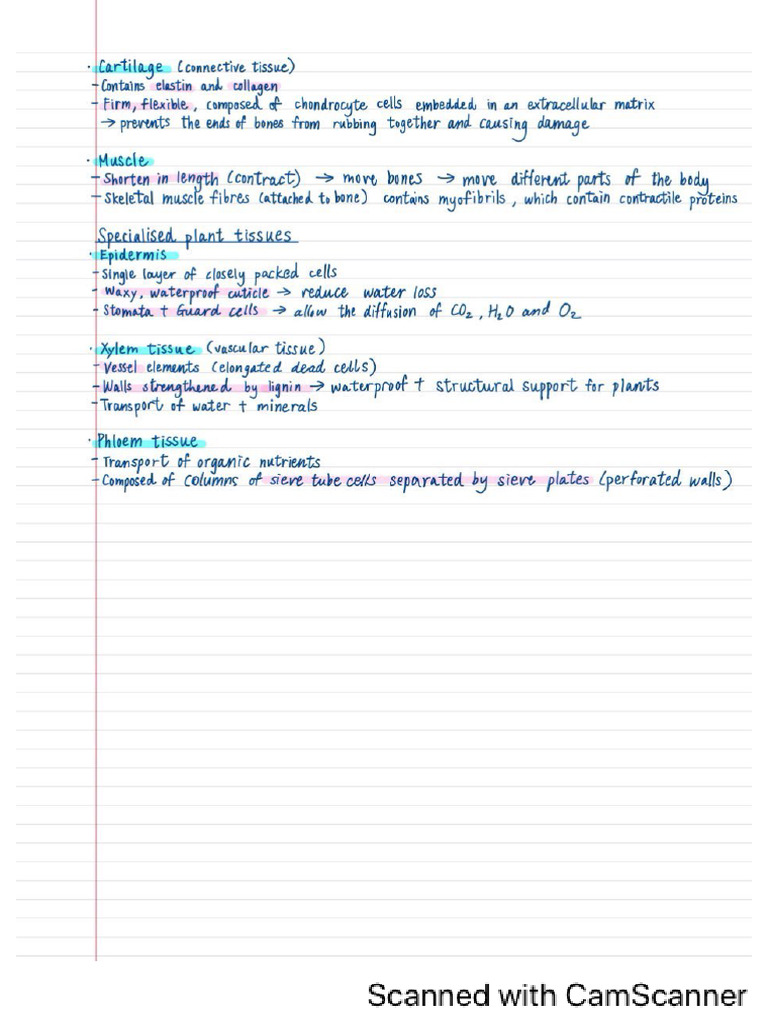 · Cartilage (connective tissue)
- Contains elastin and collagen
- Firm, flexible, composed of chondrocyte cells embedded in an extracellular matrix
→ prevents the ends of bones from rubbing together and causing damage
· Muscle
- Shorten in length (contract) → move bones → move different parts of the body
- Skeletal muscle fibres (attached to bone) contains myofibrils, which contain contractile proteins
Specialised plant tissues
· Epidermis
- Single layer of closely packed cells
- Waxy, waterproof cuticle → reduce water loss
- Stomata + Guard cells → allow the diffusion of CO₂, H₂O and O₂
· Xylem tissue (vascular tissue)
- Vessel elements (elongated dead cells)
- Walls strengthened by lignin → waterproof + structural support for plants
- Transport of water + minerals
· Phloem tissue
- Transport of organic nutrients
- Composed of columns of sieve tube cells separated by sieve plates (perforated walls)
Scanned with CamScanner